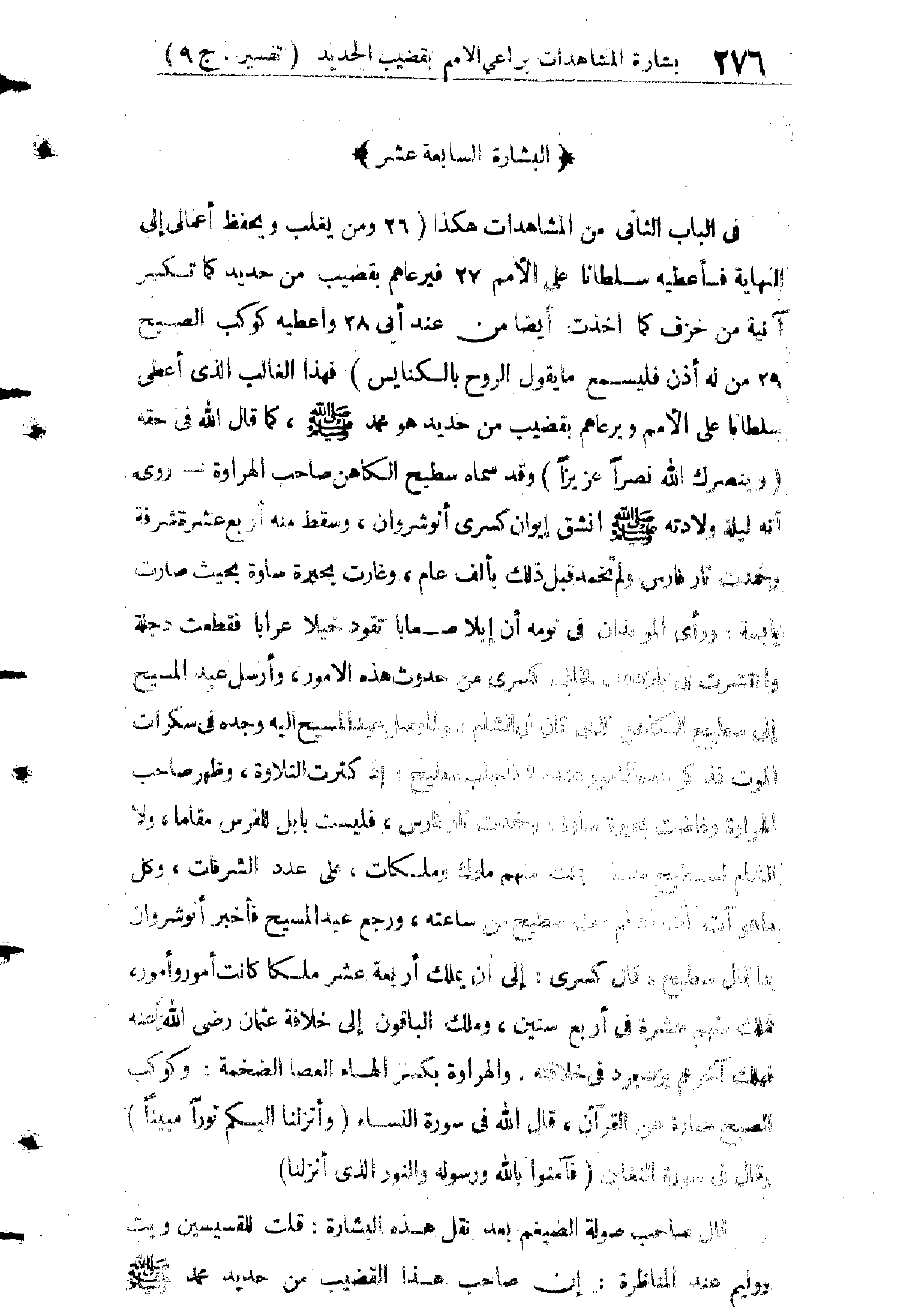 ٢٧٦ بشارة المشاهدات براعي الامم بقضيب الحديد ( تفسير . ج ٩ )
﴿ البشارة السابعة عشر ﴾
فى الباب الثانى من المشاهدات هكذا ( ٢٦ ومن يغلب ويحفظ أعمالى إلى
النهاية فسأعطيه سلطانا على الأمم ٢٧ فيرعاهم بقضيب من حديد كما تكسر
آنية من خزف كما اخذت أيضا من عند أبى ٢٨ واعطيه كوكب الصبح
٢٩ من له أذن فليسمع مايقول الروح بالكنايس ) فهذا الغالب الذى أعطى
سلطانا على الأمم ويرعاهم بقضيب من حديد هو محمد ﷺ ، كما قال الله فى حقه
( وينصرك الله نصراً عزيزاً ) وقد سماه سطيح الكاهن صاحب الهراوة — روى
أنه ليلة ولادته ﷺ انشق إيوان كسرى أنوشروان ، وسقط منه أربع عشرة شرفة
وخمدت نار فارس ولم تخمد قبل ذلك بألف عام ، وغارت بحيرة ساوة بحيث صارت
يابسة . ورأى الموبذان فى نومه أن إبلا صعابا تقود خيلا عرابا فقطعت دجلة
وانتشرت فى كسرى من حدوث هذه الامور ، وأرسل عبد المسيح
إلى سطيح الكاهن الذى كان فى الشام . عبد المسيح اليه وجده فى سكرات
الموت سطيح : إذا كثرت التلاوة ، وظهر صاحب
الهراوة بحيرة ساوة ، وخمدت نار فارس ، فليست بابل للفرس مقاما ، ولا
الشام لسطيح منهم ملوك وملكات ، على عدد الشرفات ، وكل
ماهو آت آت سطيح من ساعته ، ورجع عبد المسيح فأخبر أنوشروان
بما قال سطيح ، قال كسرى : إلى أن يملك أربعة عشر ملكا كانت أمور وأمور،
فملك منهم عشرة فى أربع سنين ، وملك الباقون إلى خلافة عثمان رضى الله عنه
فهلك آخرهم يزدجرد فى خلافته . والهراوة بكسر الهاء العصا الضخمة : وكوكب
الصبح عبارة عن القرآن ، قال الله فى سورة النساء ( وأنزلنا اليكم نوراً مبيناً )
وقال فى سورة التغابن ( فآمنوا بالله ورسوله والنور الذى أنزلنا)
قال صاحب صولة الضيغم بعد نقل هذه البشارة : قلت للقسيسين ويت
ووليم عند المناظرة : إن صاحب هذا القضيب من حديد محمد ﷺ